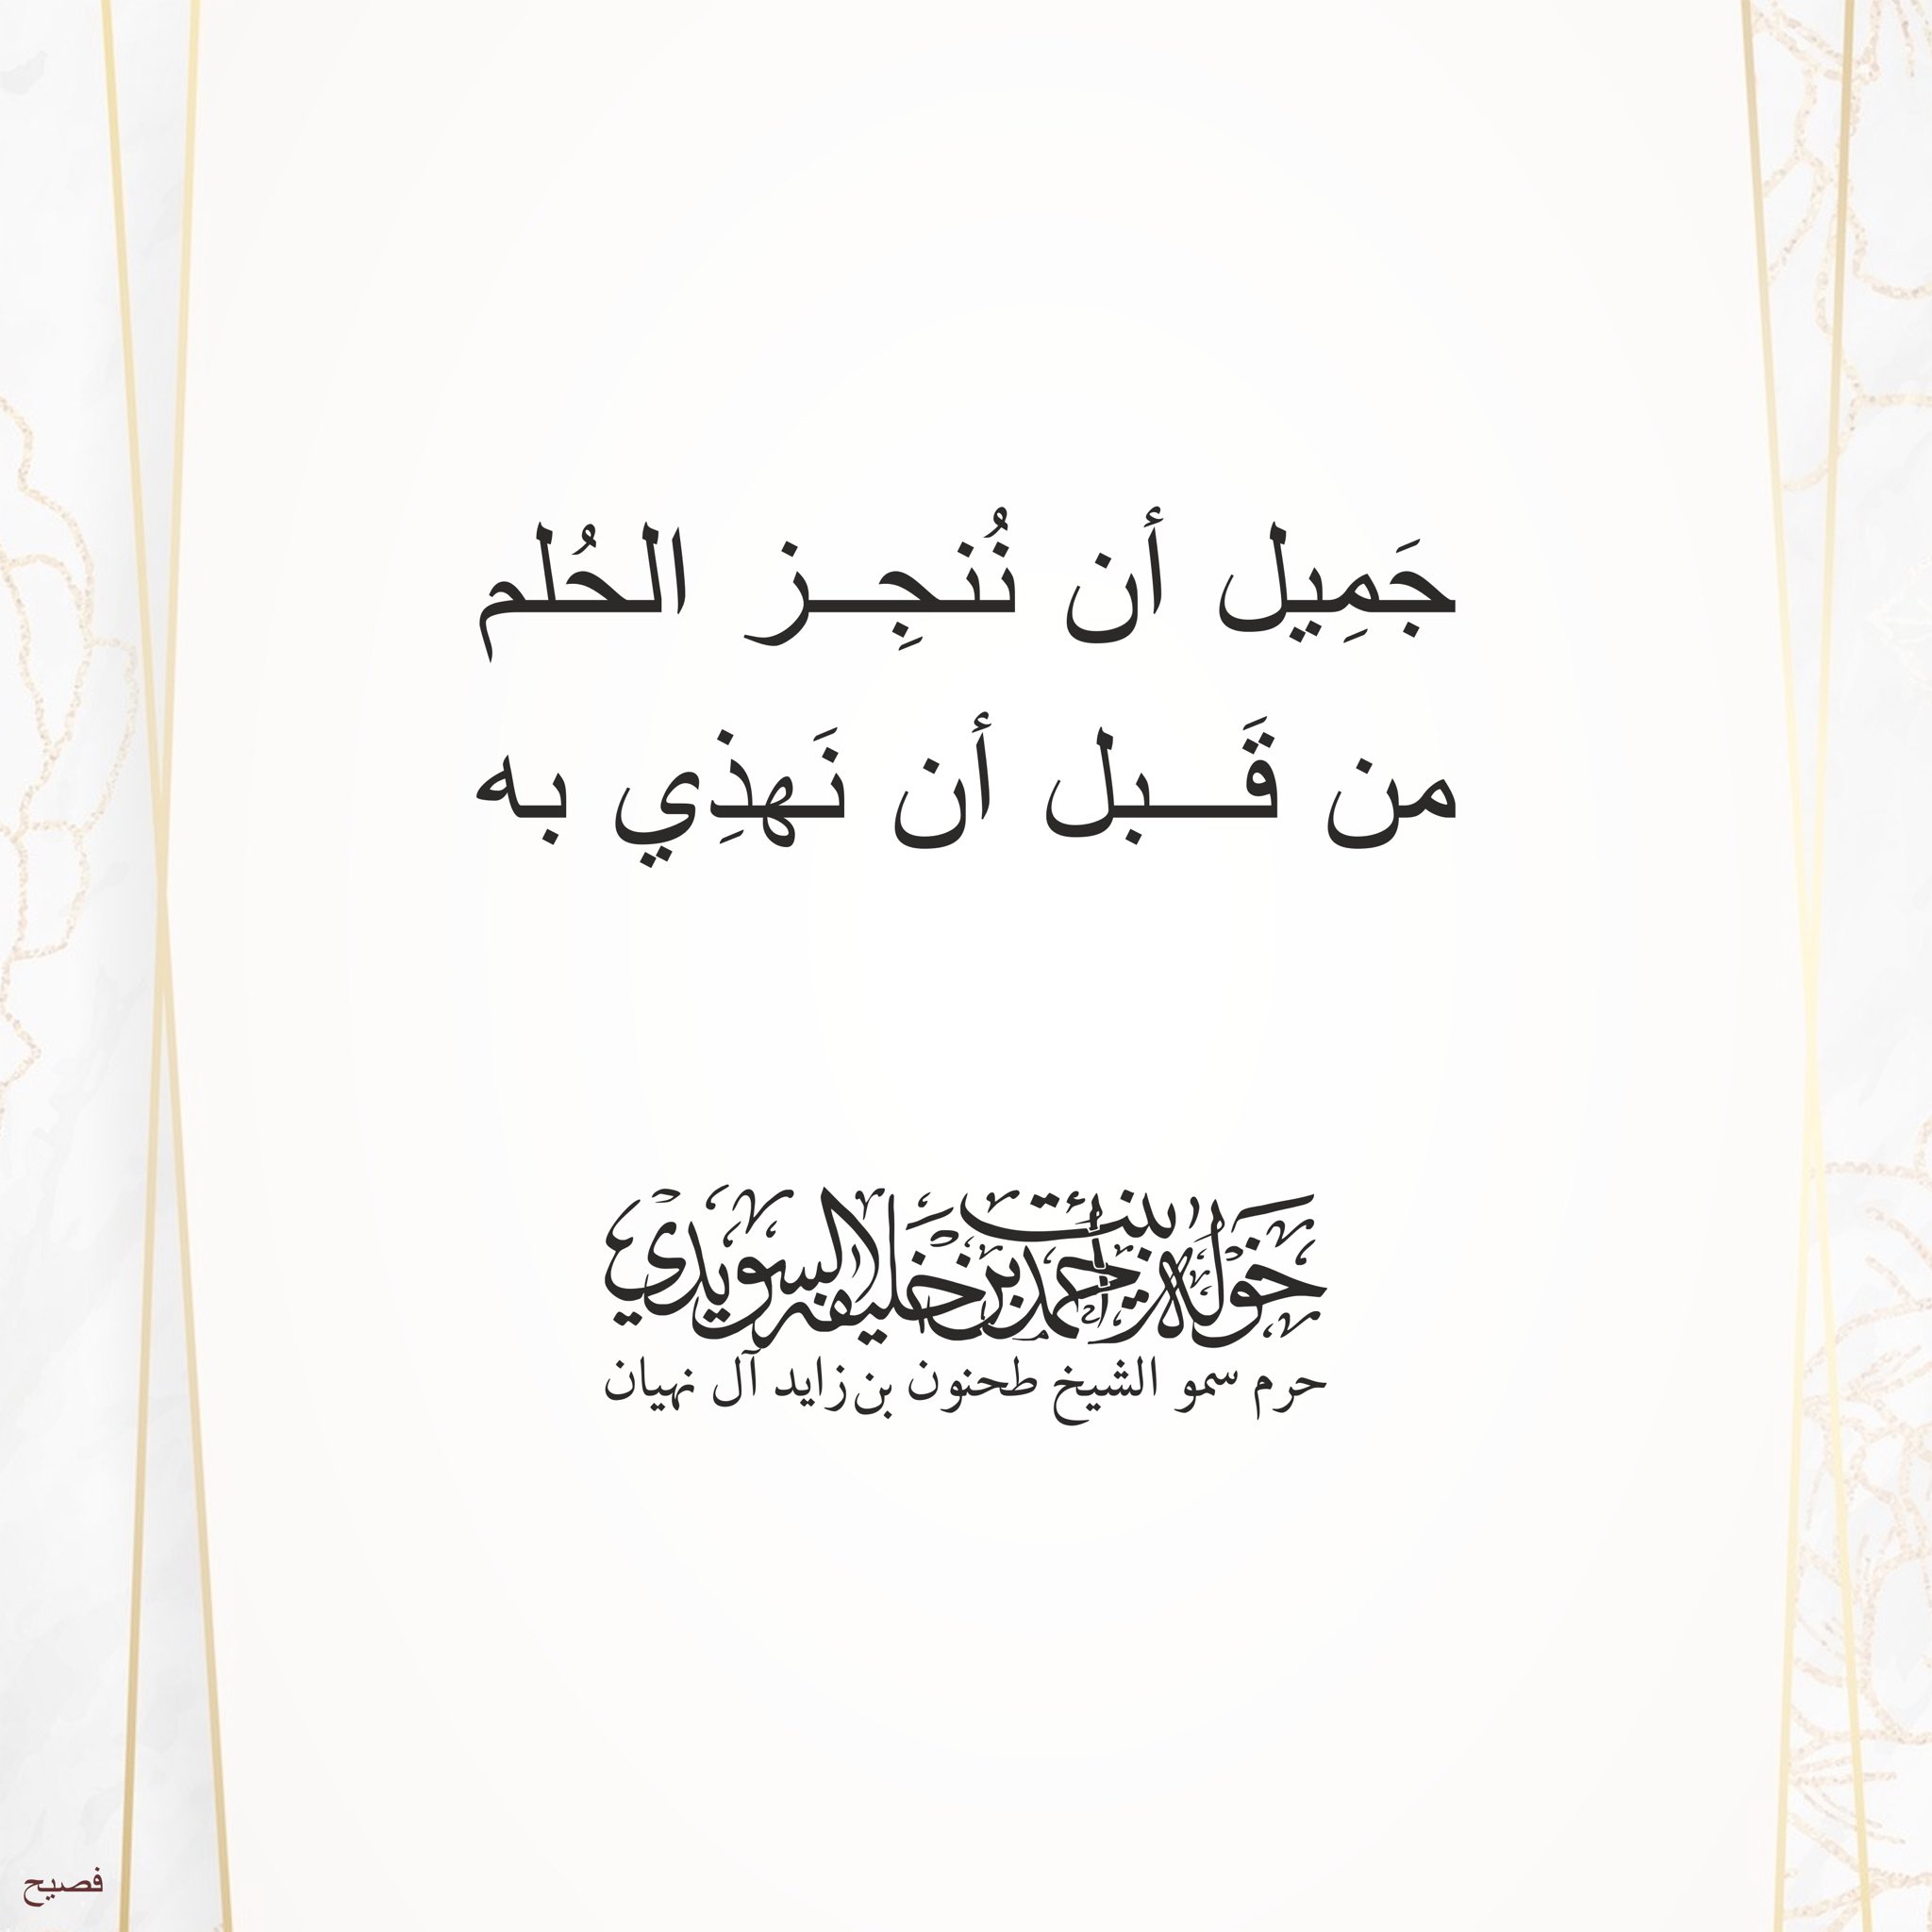 جَمِيل أن نُنجِـــز الحُلم
من قَـــبل أن نَهذِي به
خوله بنت أحمد بن خليفه السويدي
حرم سمو الشيخ طحنون بن زايد آل نهيان
فصيح